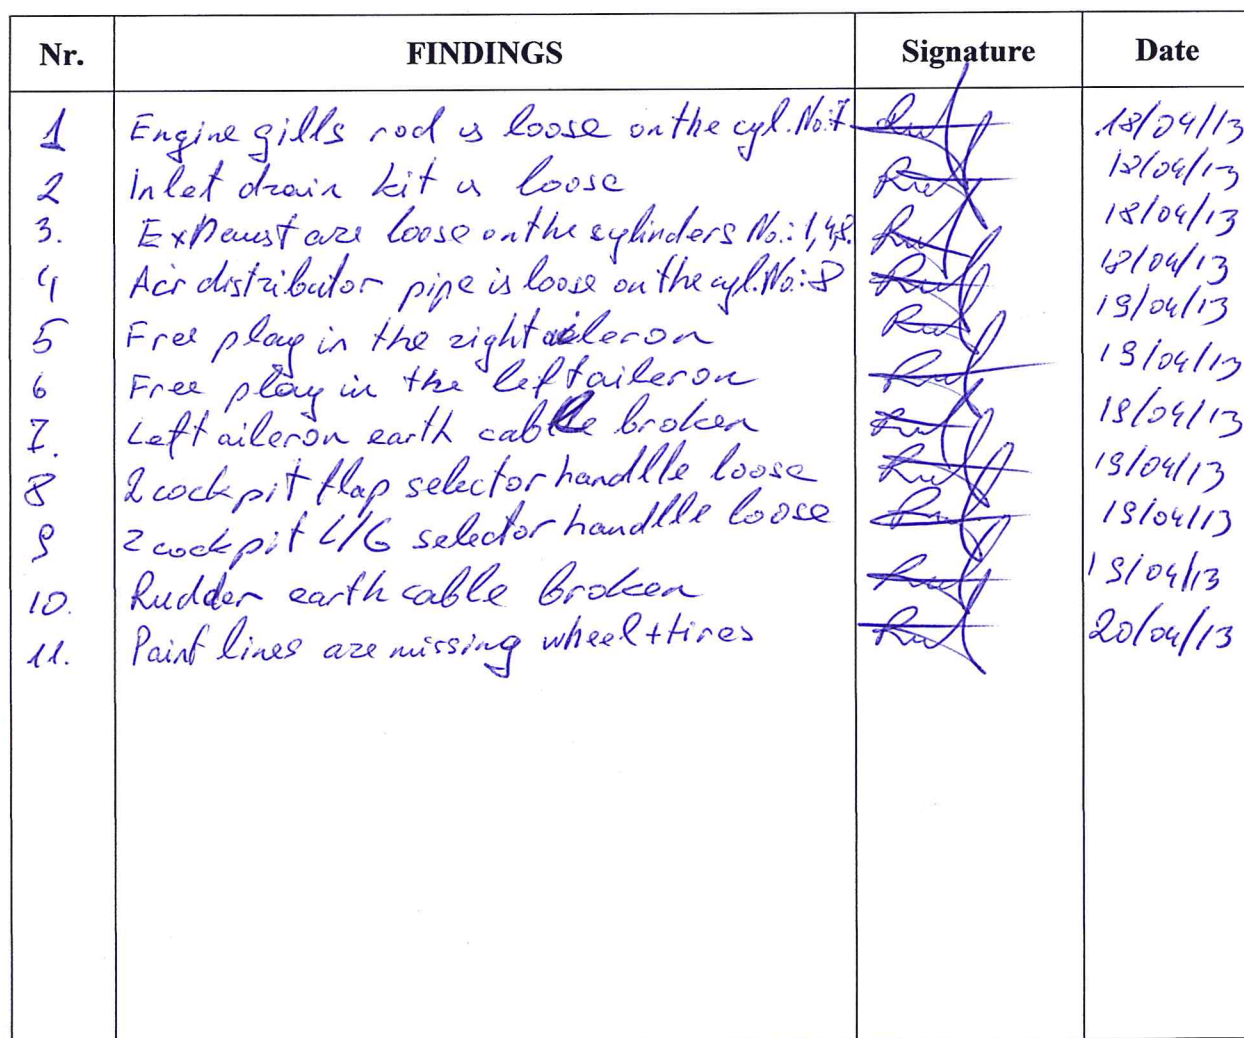 Nr. FINDINGS Signature Date
1 Engine gills rod is loose on the cyl. No:7 18/04/13
2 Inlet drain kit is loose 18/04/13
3. Exhaust are loose on the cylinders No.: 1,4,8. 18/04/13
4 Air distributor pipe is loose on the cyl. No.: 8 18/04/13
5 Free play in the right aileron 19/04/13
6 Free play in the left aileron 19/04/13
7. Left aileron earth cable broken 19/04/13
8 2 cockpit flap selector handlle loose 19/04/13
9 2 cockpit L/G selector handlle loose 19/04/13
10. Rudder earth cable broken 19/04/13
11. Paint lines are missing wheel+tires 20/04/13